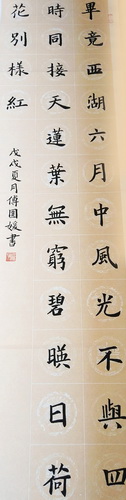 畢竟西湖六月中風光不與四
時同接天蓮葉無窮碧暎日荷
花別樣紅
戊戌夏月傅園媛書